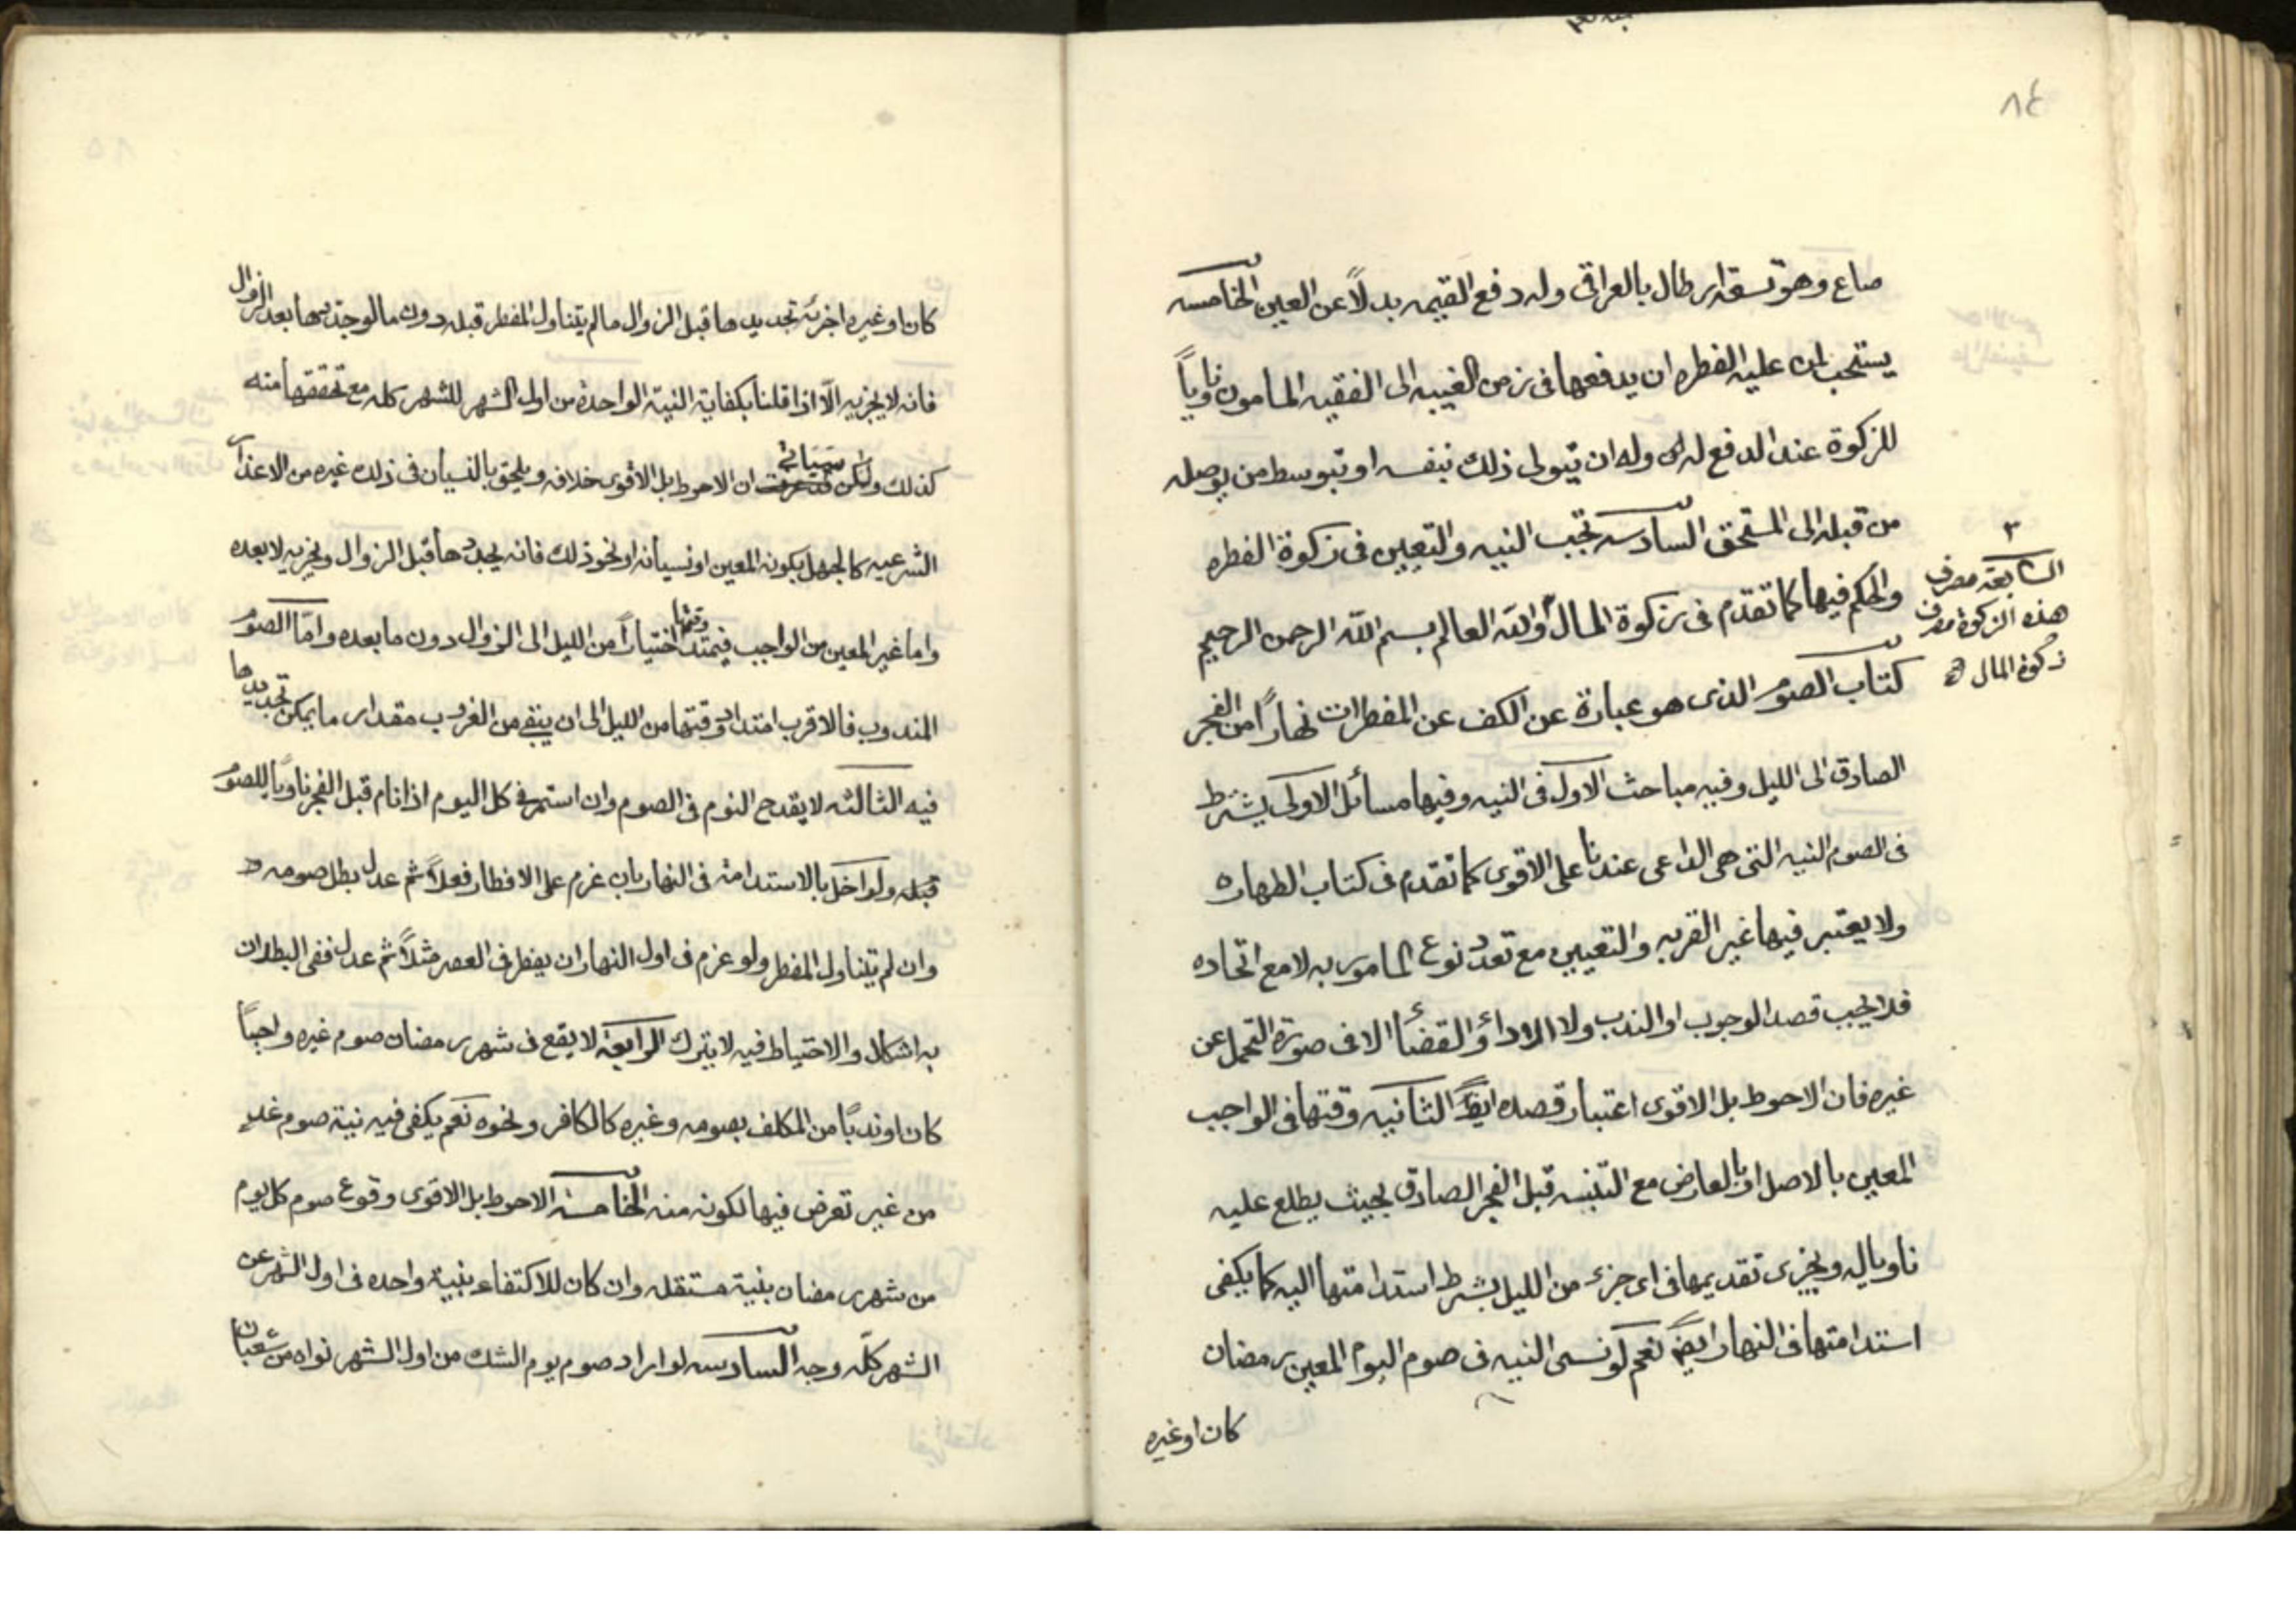 ٨٤
صاع وهو تسقه ارطال بالعراقى وله دفع القيمه بدلاً عن العين الخامسه
يستحب لمن عليه الفطره ان يدفعها فى زمن الغيبه الى الفقيه المأمون ناوياً
للزكوة عند الدفع له وله ان يتولى ذلك بنفسه او بتوسط من يوصله
من قبله الى المستحق السادسه تجب النيه والتعيين فى زكوة الفطره
والحكم فيها كما تقدم فى زكوة المال والله العالم بسم الله الرحمن الرحيم
السابعة مصرف
هذه الزكوة مصرف
زكوة المال
كتاب الصوم الذى هو عبارة عن الكف عن المفطرات نهاراً من الفجر
الصادق الى الليل وفيه مباحث الاول فى النيه وفيها مسائل الاولى يشترط
فى الصوم النيه التى هى الداعى عندنا على الاقوى كما تقدم فى كتاب الطهاره
ولا يعتبر فيها غير القربه والتعيين مع تعدد نوع المامور به لا مع اتحاده
فلا يجب قصد الوجوب او الندب ولا الاداء والقضاء الا فى صورة التحمل عن
غيره فان الاحوط بل الاقوى اعتبار قصده ايضاً الثانيه وقتها فى الواجب
المعين بالاصل او بالعارض مع التنبيه قبل الفجر الصادق بحيث يطلع عليه
ناويا له ويجزى تقديمها فى اى جزء من الليل بشرط استدامتها اليه كما يكفى
استدامتها فى النهار ايضاً نعم لو نسى النيه فى صوم اليوم المعين رمضان
كان او غيره
كان او غيره اجزئه تجديدها قبل الزوال ما لم يتناول المفطر قبله دون ما لو جددها بعد الزوال
فانه لا يجزيه الّا اذا قلنا بكفاية النية الواحدة من اول الشهر للشهر كله مع تحققها منه
كذلك ولكن ستسيأتى ان الاحوط بل الاقوى خلافه ويلحق بالنسيان فى ذلك غيره من الاعذار
الشرعيه كالجهل بكونه المعين او نسيانه او نحو ذلك فانه يجددها قبل الزوال ويجزيه لا بعده
واما غير المعين من الواجب فيمتد وقتها اختياراً من الليل الى الزوال دون ما بعده وامّا الصوم
المندوب فالاقرب امتداد وقتها من الليل الى ان يبقى من الغروب مقدار ما يمكن تجديدها
فيه الثالثه لا يقدح النوم فى الصوم وان استمر فى كل اليوم اذا نام قبل الفجر ناوياً للصوم
قبله ولو اخل بالاستدامة فى النهار بان عزم على الافطار فعلاً ثم عدل بطل صومه
وان لم يتناول المفطر ولو عزم فى اول النهار ان يفطر فى العصر مثلاً ثم عدل ففى البطلان
به اشكال والاحتياط فيه لا يترك الرابعة لا يقع فى شهر رمضان صوم غيره واجباً
كان او ندباً من المكلف بصومه وغيره كالكافر ونحوه نعم يكفى فيه نية صوم غد
من غير تعرض فيها لكونه منه الخامسة الاحوط بل الاقوى وقوع صوم كل يوم
من شهر رمضان بنية مستقله وان كان للاكتفاء بنية واحده فى اول الشهر عن
الشهر كلّه وجه السادسه لو اراد صوم يوم الشك من اول الشهر نواه من شعبان